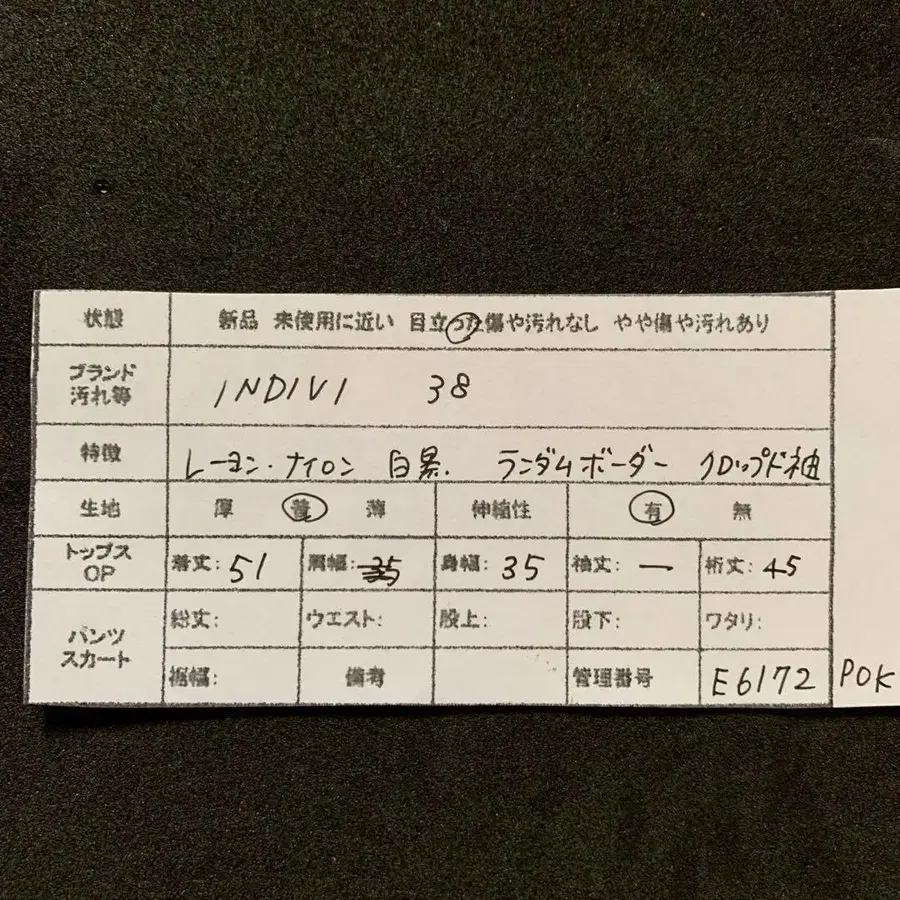 状態 新品 未使用に近い 目立った傷や汚れなし やや傷や汚れあり
ブランド
汚れ等 INDIVI 38
特徴 レーヨン・ナイロン 白黒. ランダムボーダー クロップド袖
生地 厚 普 薄 伸縮性 有 無
トップス
OP 着丈: 51 肩幅: 35 身幅: 35 袖丈: ー 裄丈: 45
パンツ
スカート 総丈: ウエスト: 股上: 股下: ワタリ:
裾幅: 備考 管理番号 E6172 POK